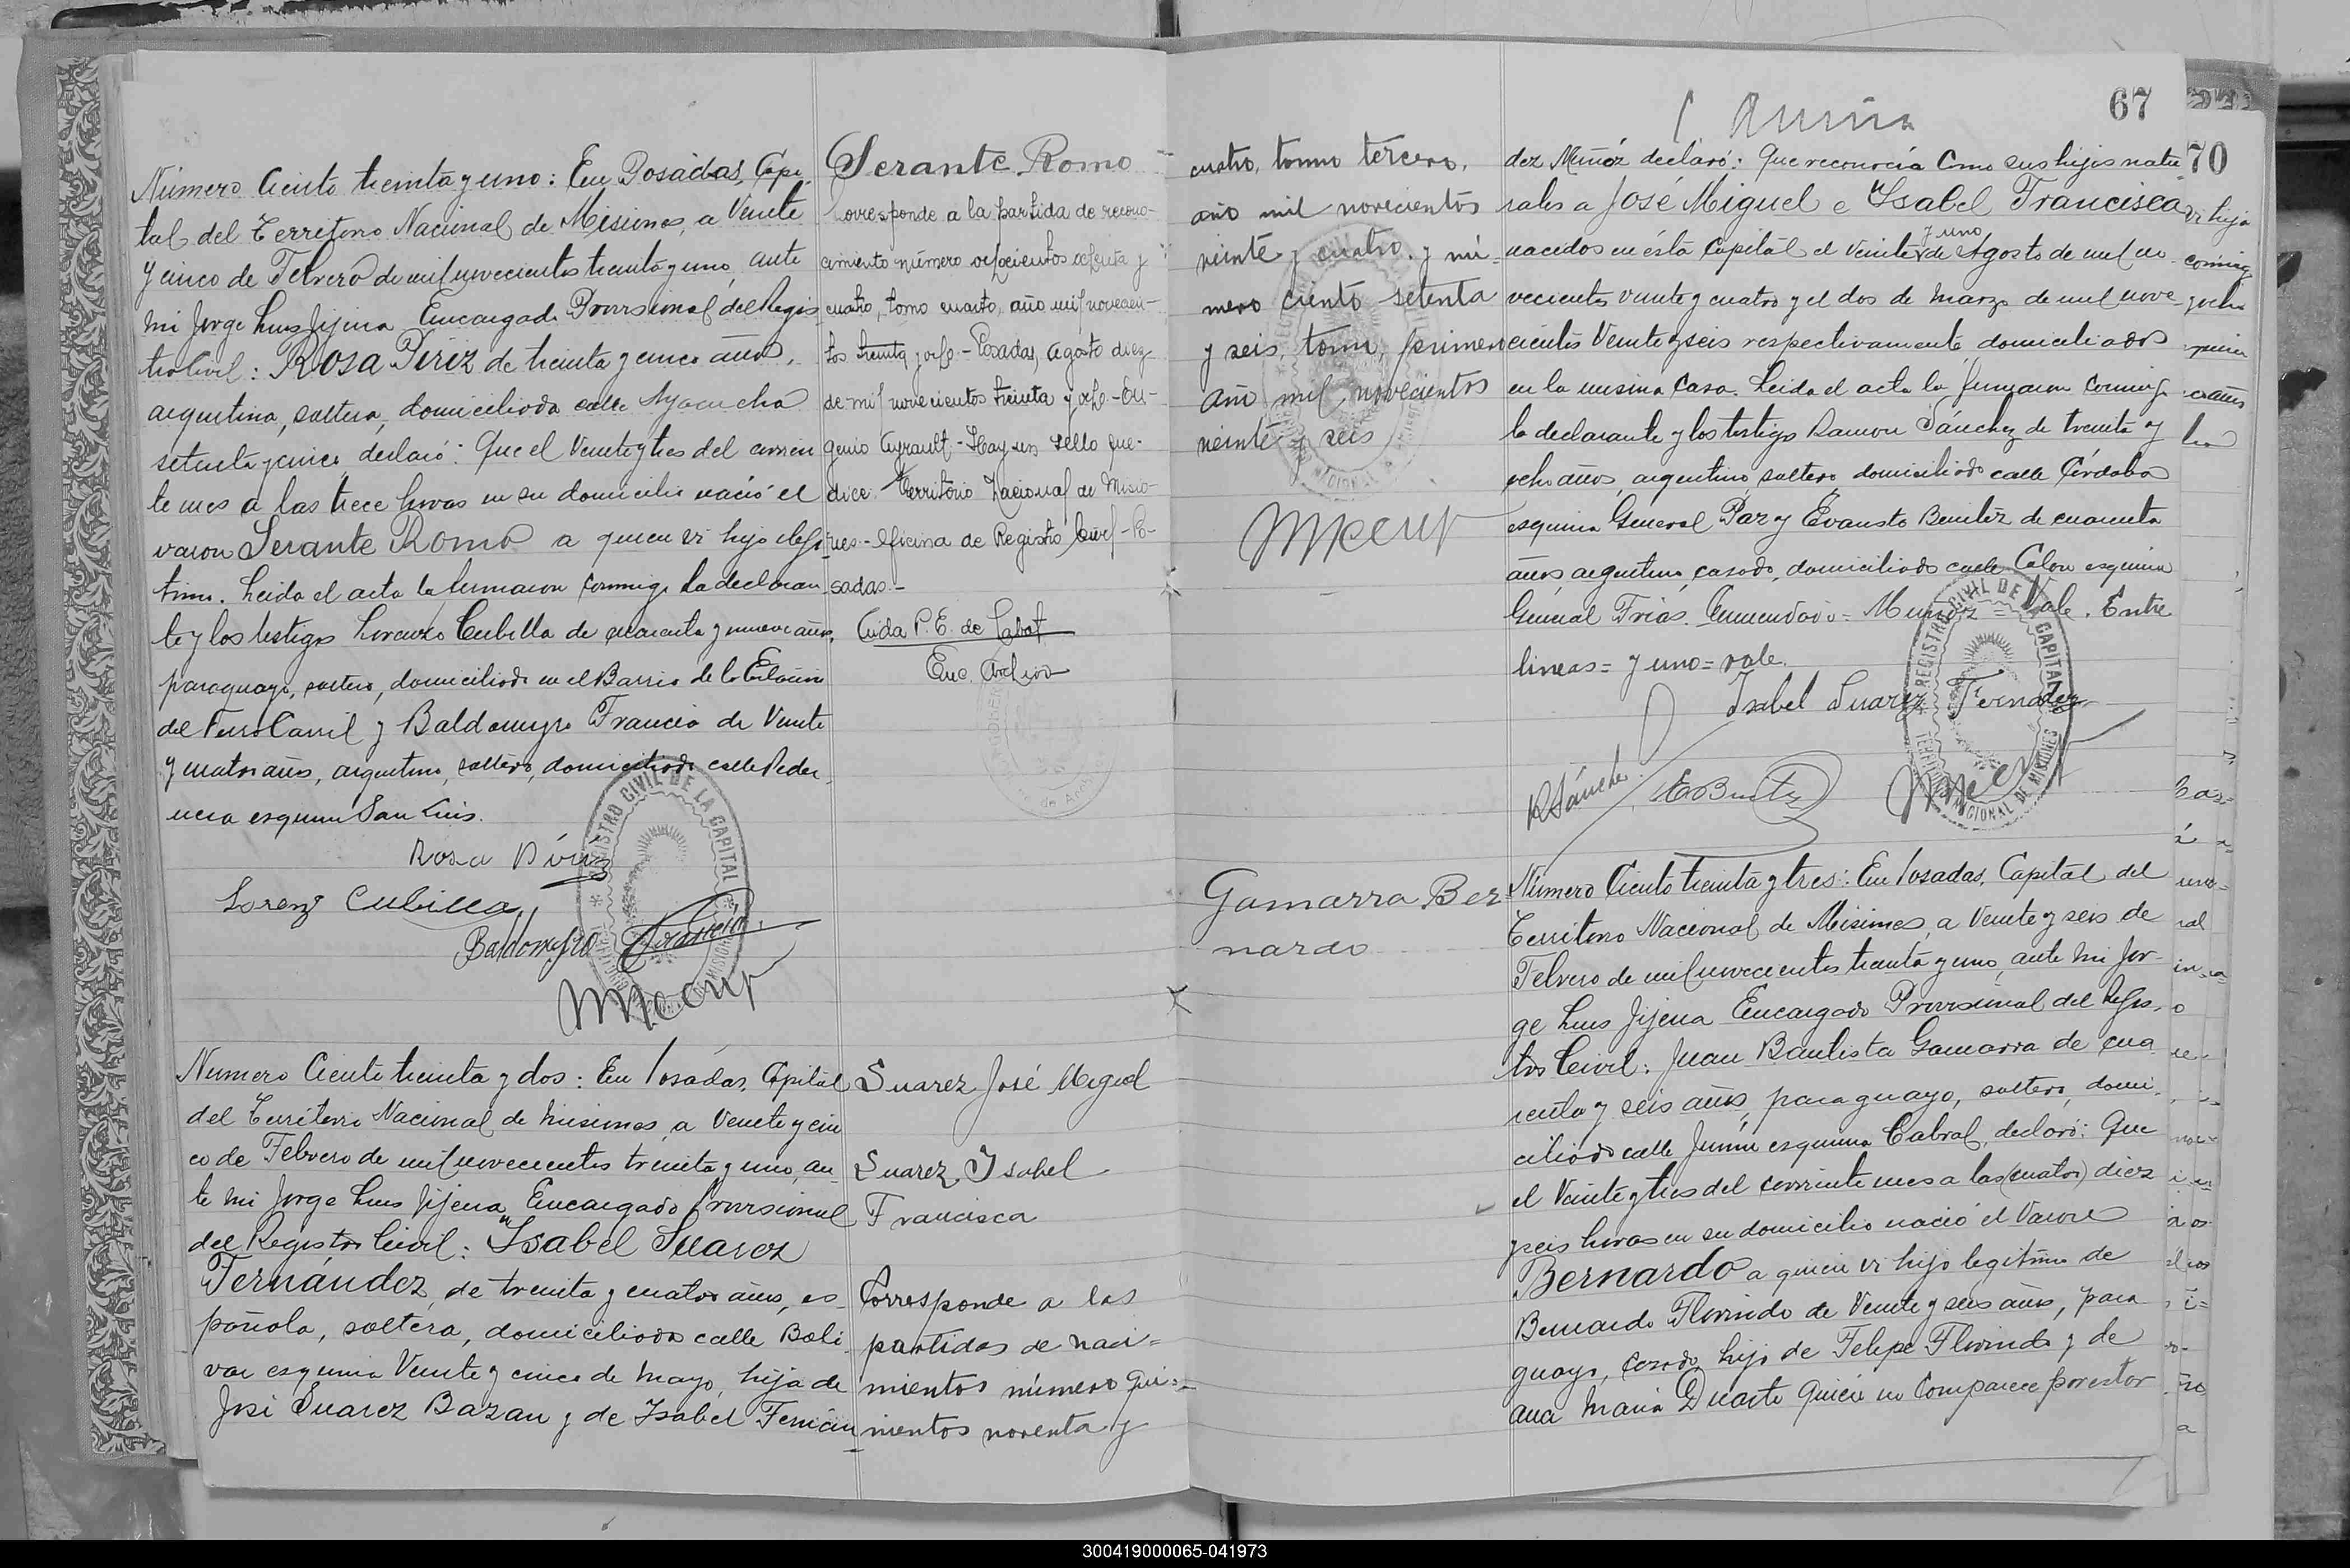 Número Ciento treinta y uno: En Posadas, Capi-
tal del Territorio Nacional de Misiones, a Veinte
y cinco de Febrero de mil novecientos treinta y uno, ante
mi Jorge Luis Jijena Encargado Provisional del Regis
tro Civil: Rosa Píriz de treinta y cinco años,
argentina, soltera, domiciliada calle Ayacucho
setenta y cinco declaró: Que el Veinte y tres del corrien
te mes a las trece horas en su domicilio nació el
varon Serante Romo a quien vi hijo ilegi-
timo. Leida el acta la firmaron conmigo la declaran
te y los testigos Lorenzo Cubilla de cuarenta y nueve años,
paraguayo, soltero, domiciliado en el Barrio de la Estación
del Ferro Carril y Baldomyro Francia de Veinte
y cuatro años, argentino, soltero, domiciliado calle
esquina San Luis.
Rosa Píriz
Lorenzo Cubilla
Baldomyro Francia
Serante Romo
Corresponde a la partida de recono-
cimiento número ochocientos ochenta y
cuatro, tomo cuarto, año mil novecien-
tos treinta y ocho.- Posadas, Agosto diez
de mil novecientos treinta y ocho.- Eu-
genio Ayrault.- Hay un sello que
dice: Territorio Nacional de Misio-
nes.- Oficina de Registro Civil.- Po-
sadas.-
P. E. de Labat
Enc. Archivo
REGISTRO CIVIL DE LA CAPITAL
Numero Ciento treinta y dos: En Posadas, Capital
del Territorio Nacional de Misiones, a Veinte y cin
co de Febrero de mil novecientos treinta y uno, an-
te mi Jorge Luis Jijena Encargado Provisional
del Registro Civil: Isabel Suarez
Fernández, de treinta y cuatro años, es-
pañola, soltera, domiciliada calle Boli-
var esquina Veinte y cinco de Mayo, hija de
José Suarez Bazan y de Isabel Fernán-
Suarez José Miguel
Suarez, Isabel
Francisca
Corresponde a las
partidas de naci-
mientos número qui-
nientos noventa y
67
70
cuatro, tomo tercero,
año mil novecientos
veinte y cuatro. y nú-
mero ciento setenta
y seis, tomo, primero
año mil novecientos
veinte y seis
dez Muñóz declaró: Que reconocía como sus hijos natu-
rales a José Miguel e Isabel Francisca
y uno
nacidos en ésta Capital el veinte de Agosto de mil no-
vecientos veinte y cuatro y el dos de Marzo de mil nove
cientos Veinte y seis respectivamente domiciliados
en la misma casa. Leida el acta la firmaron conmigo
la declarante y los testigos Ramon Sánchez de treinta y
ocho años, argentino, soltero, domiciliado calle Córdoba
esquina General Paz y Evaristo Benitez de cuarenta
años argentino, casado, domiciliado calle Colon esquina
General Frias. Enmendado = Muñoz = Vale. Entre
lineas = y uno = vale.
Isabel Suarez Fernadez
R Sánchez
E Benitez
REGISTRO CIVIL DE LA CAPITAL
TERRITORIO NACIONAL DE MISIONES
Gamarra Ber
nardo
Número Ciento treinta y tres: En Posadas, Capital del
Territorio Nacional de Misiones, a Veinte y seis de
Febrero de mil novecientos treinta y uno, ante mi Jor-
ge Luis Jijena Encargado Provisional del Regis-
tro Civil: Juan Bautista Gamarra de cua
renta y seis años, paraguayo, soltero, domi-
ciliado calle Junín esquina Cabral, declaró: Que
el Veinte y tres del corriente mes a las (cuatro) diez
y seis horas en su domicilio nació el Varon
Bernardo a quien vi hijo legitimo de
Bernardo Florindo de Veinte y seis años, para
guayo, casado, hijo de Felipe Florindo y de
Ana Maria Duarte quien no comparece por estar